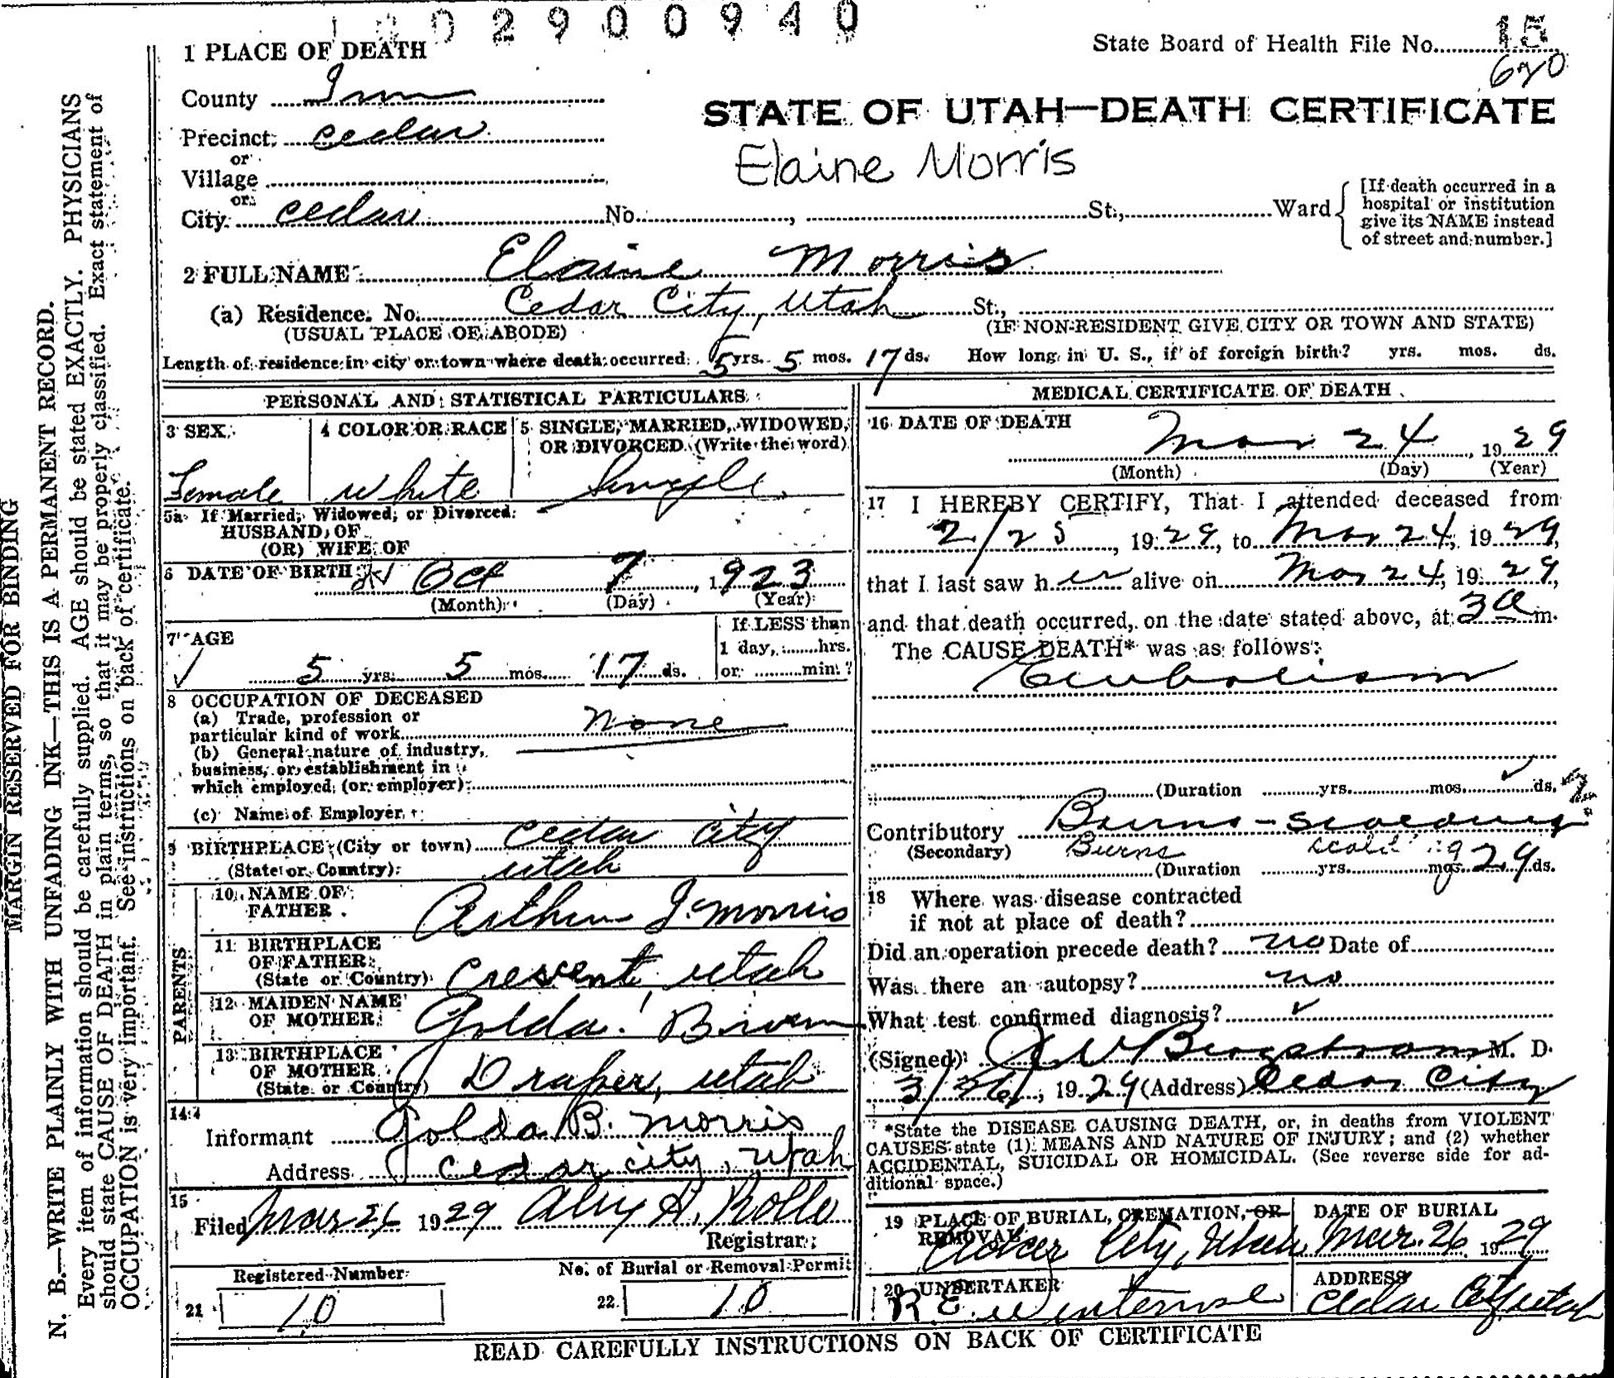 2900940
State Board of Health File No. 15
620
1 PLACE OF DEATH
County Iron
STATE OF UTAH—DEATH CERTIFICATE
Precinct Cedar
or
Village
Elaine Morris
or
City Cedar No. , St., Ward
[If death occurred in a hospital or institution give its NAME instead of street and number.]
2 FULL NAME Elaine Morris
(a) Residence. No. Cedar City, Utah St.,
(USUAL PLACE OF ABODE) (IF NON-RESIDENT GIVE CITY OR TOWN AND STATE)
Length of residence in city or town where death occurred 5 yrs. 5 mos. 17 ds. How long in U. S., if of foreign birth? yrs. mos. ds.
PERSONAL AND STATISTICAL PARTICULARS
3 SEX
Female
4 COLOR OR RACE
White
5 SINGLE, MARRIED, WIDOWED,
OR DIVORCED (Write the word)
Single
5a If Married, Widowed, or Divorced
HUSBAND OF
(OR) WIFE OF
6 DATE OF BIRTH Oct 7, 1923
(Month) (Day) (Year)
7 AGE
5 yrs. 5 mos. 17 ds.
If LESS than
1 day, hrs.
or min.?
8 OCCUPATION OF DECEASED
(a) Trade, profession or
particular kind of work None
(b) General nature of industry,
business, or establishment in
which employed (or employer)
(c) Name of Employer
9 BIRTHPLACE (City or town) Cedar City
(State or Country) Utah
PARENTS
10 NAME OF
FATHER Arthur J. Morris
11 BIRTHPLACE
OF FATHER
(State or Country) Crescent, Utah
12 MAIDEN NAME
OF MOTHER Golda Brown
13 BIRTHPLACE
OF MOTHER
(State or Country) Draper, Utah
14
Informant Golda B. Morris
Address Cedar City, Utah
15
Filed Mar 26 1929
Registrar
Registered Number
21 10
No. of Burial or Removal Permit
22 10
MEDICAL CERTIFICATE OF DEATH
16 DATE OF DEATH
Mar 24, 1929
(Month) (Day) (Year)
17 I HEREBY CERTIFY, That I attended deceased from
2/25, 1929, to Mar 24, 1929,
that I last saw her alive on Mar 24, 1929,
and that death occurred, on the date stated above, at 3 a m.
The CAUSE DEATH* was as follows:
Embolism
(Duration yrs. mos. ds. 2
Contributory Burns - scalding
(Secondary) Burns scalding
(Duration yrs. mos. 29 ds.
18 Where was disease contracted
if not at place of death?
Did an operation precede death? no Date of
Was there an autopsy? no
What test confirmed diagnosis?
(Signed) A V Bergstrom M. D.
3/26, 1929 (Address) Cedar City
*State the DISEASE CAUSING DEATH, or, in deaths from VIOLENT
CAUSES state (1) MEANS AND NATURE OF INJURY; and (2) whether
ACCIDENTAL, SUICIDAL OR HOMICIDAL. (See reverse side for ad-
ditional space.)
19 PLACE OF BURIAL, CREMATION, OR
REMOVAL
Cedar City, Utah
DATE OF BURIAL
Mar. 26 1929
20 UNDERTAKER
R. E.
ADDRESS
Cedar City Utah
READ CAREFULLY INSTRUCTIONS ON BACK OF CERTIFICATE
MARGIN RESERVED FOR BINDING
N. B.—WRITE PLAINLY WITH UNFADING INK—THIS IS A PERMANENT RECORD.
Every item of information should be carefully supplied. AGE should be stated EXACTLY. PHYSICIANS
should state CAUSE OF DEATH in plain terms, so that it may be properly classified. Exact statement of
OCCUPATION is very important. See instructions on back of certificate.